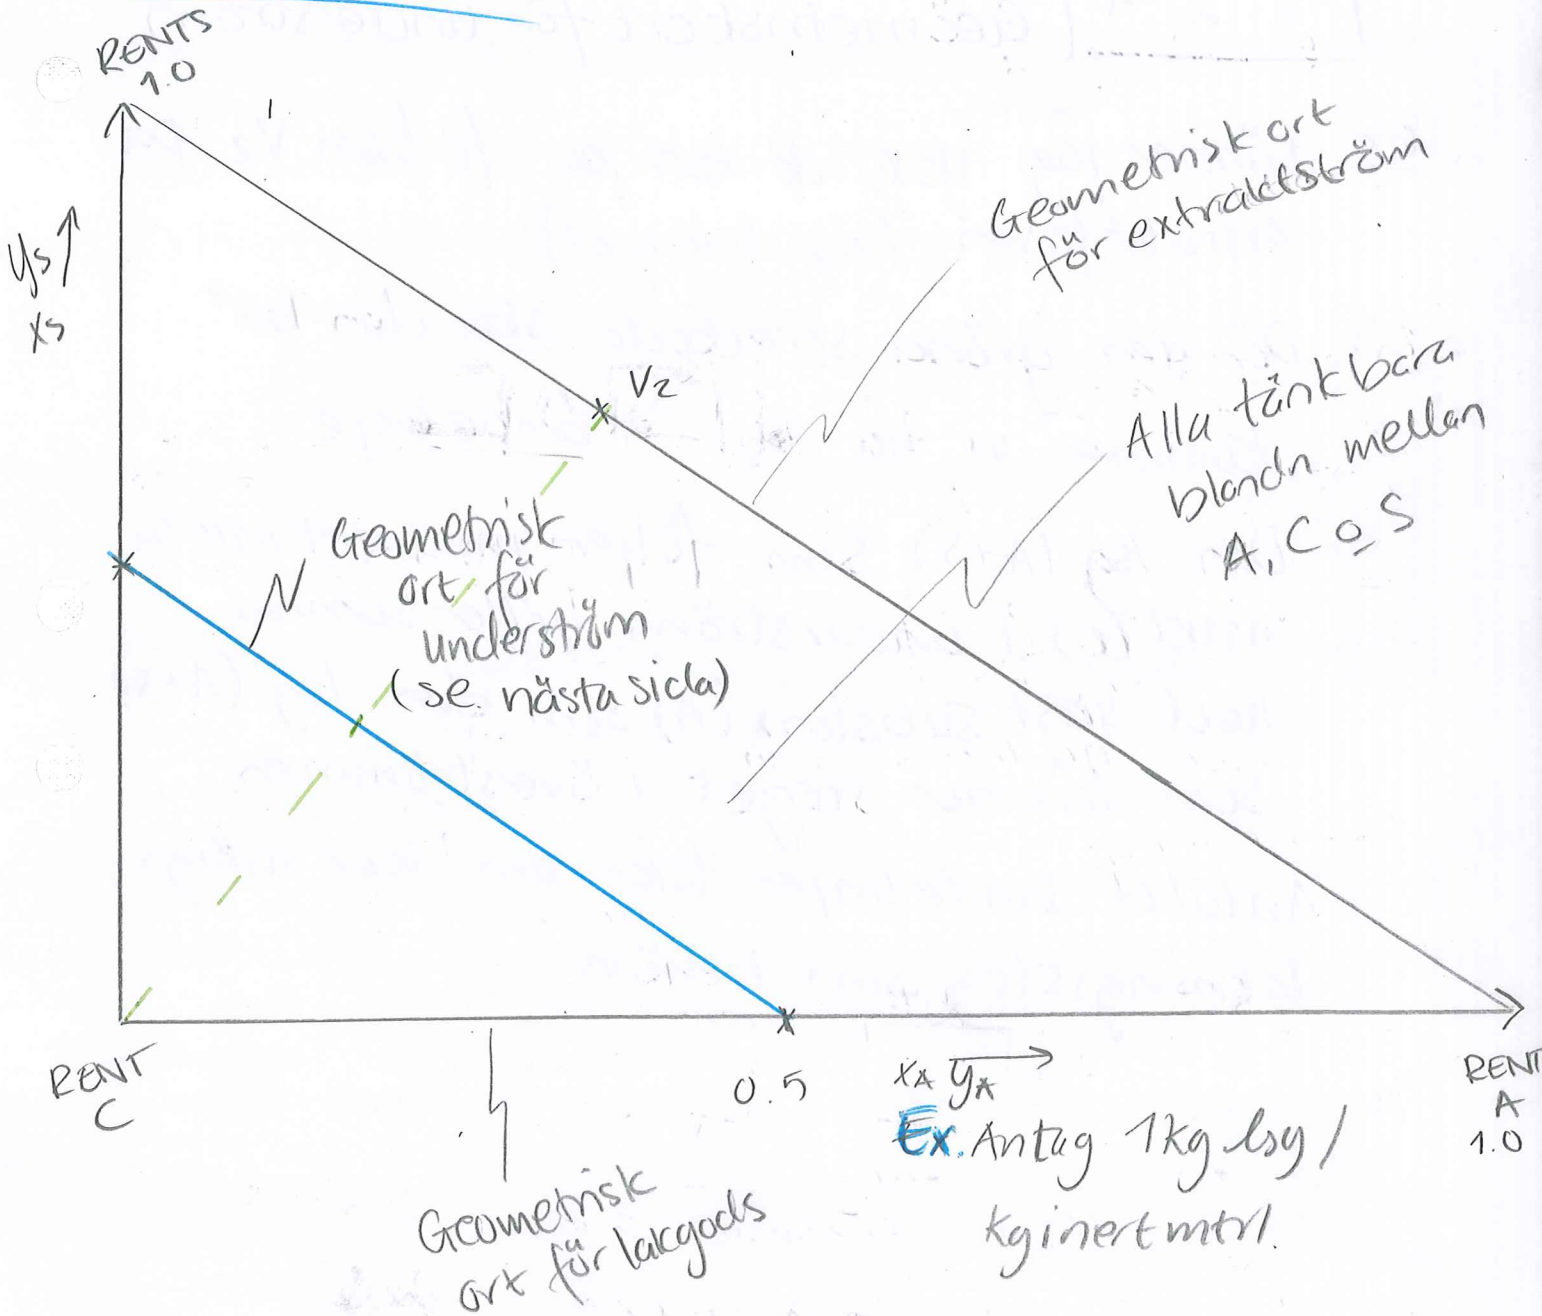 RENTS
1.0
ys
xs
Geometrisk ort
för extraktström
V2
Alla tänkbara
blandn mellan
A, C o S
Geometrisk
ort för
underström
(se. nästa sida)
RENT
C
0.5
xA yA
RENT
A
1.0
Ex. Antag 1kg lsg /
kg inert mtrl.
Geometrisk
ort för lakgods